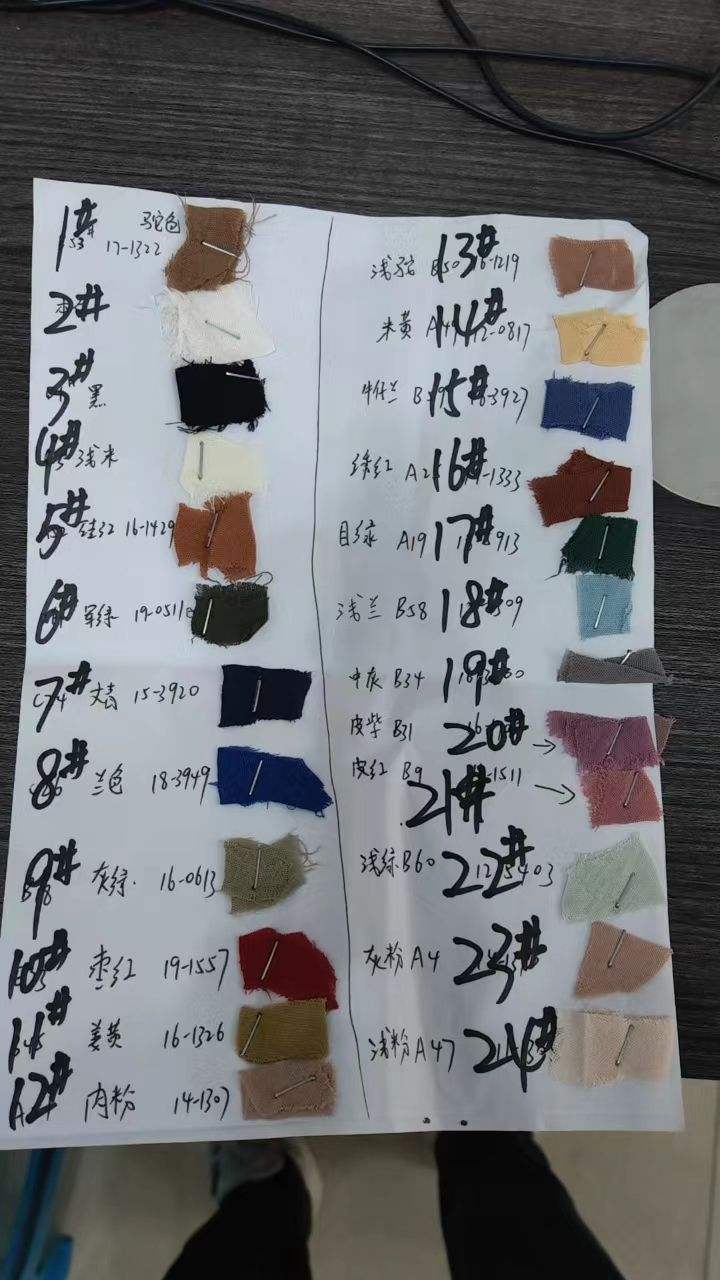 1# 驼色 17-1322
2#
3# 黑
4# 浅米
5# 砖红 16-1429
6# 军绿 19-0511
7# 丈青 15-3920
8# 兰色 18-3949
9# 灰绿. 16-0613
10# 枣红 19-1557
11# 姜黄 16-1326
12# 肉粉 14-1307
13# 浅驼 -1219
14# 米黄 -0817
15# 牛仔兰 B -3927
16# 锈红 A2 -1333
17# 目绿 A19 913
18# 浅兰 B58
19# 中灰 B34
20# 皮柴 B31 →
21# 皮红 B9 1511 →
22# 浅绿 B60
23# 灰粉 A4
24# 浅粉 A47